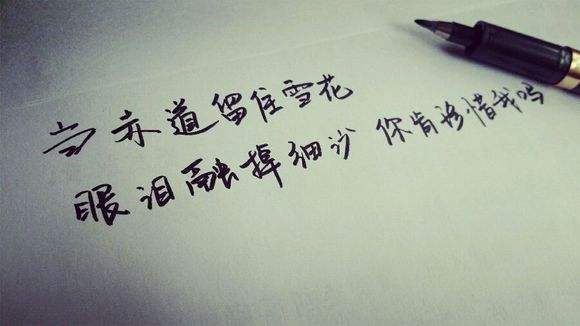 当赤道留住雪花
眼泪融掉细沙 你肯珍惜我吗